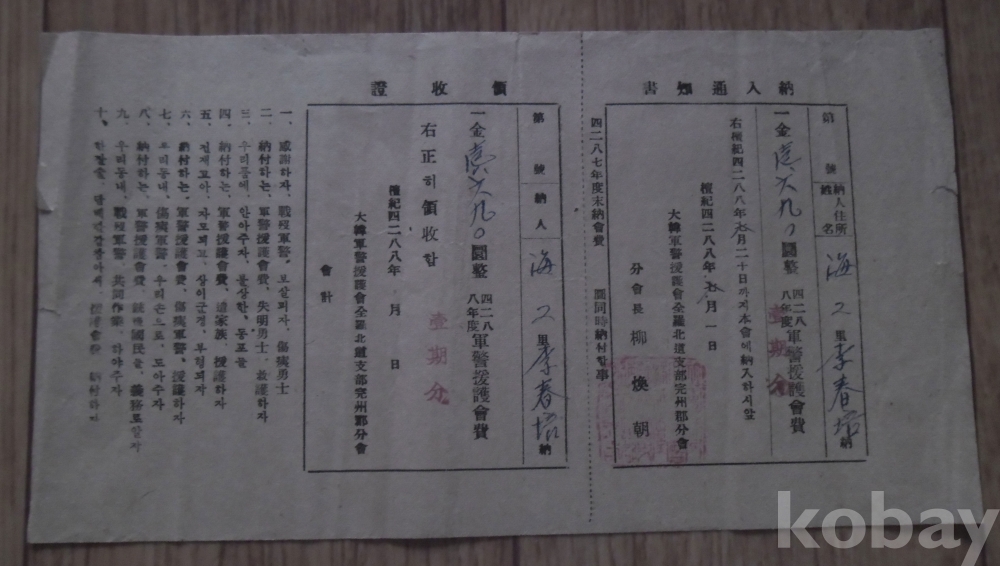 納入通知書
第 號 納人住所姓名 海 里 李春培 納
一金 圓整 四二八八年度 軍警援護會費
壹期分
右檀紀四二八八年 月二十日까지本會에納入하시앞
檀紀四二八八年 月一日
大韓軍警援護會全羅北道支部完州郡分會
分會長 柳 煥 朝
四二八七年度未納會費 圓同時納付할事
領收證
第 號 納人 海 里 李春培 納
一金 圓整 四二八八年度 軍警援護會費
壹期分
右正히領收함
檀紀四二八八年 月 日
大韓軍警援護會全羅北道支部完州郡分會
會計
一、感謝하자、戰歿軍警、보살피자、傷痍勇士
二、納付하는、軍警援護會費、失明勇士、救護하자
三、우리품에、안아주자、불상한、동포를
四、納付하는、軍警援護會費、遺家族、援護하자
五、전재고아、자모되고、상이군경、부형되자
六、納付하는、軍警援護會費、傷痍軍警、援護하자
七、우리동내、傷痍軍警、우리손으로、도아주자
八、納付하는、軍警援護會費、
九、우리동내、戰歿軍警、共同作業、하야주자
十、
kobay